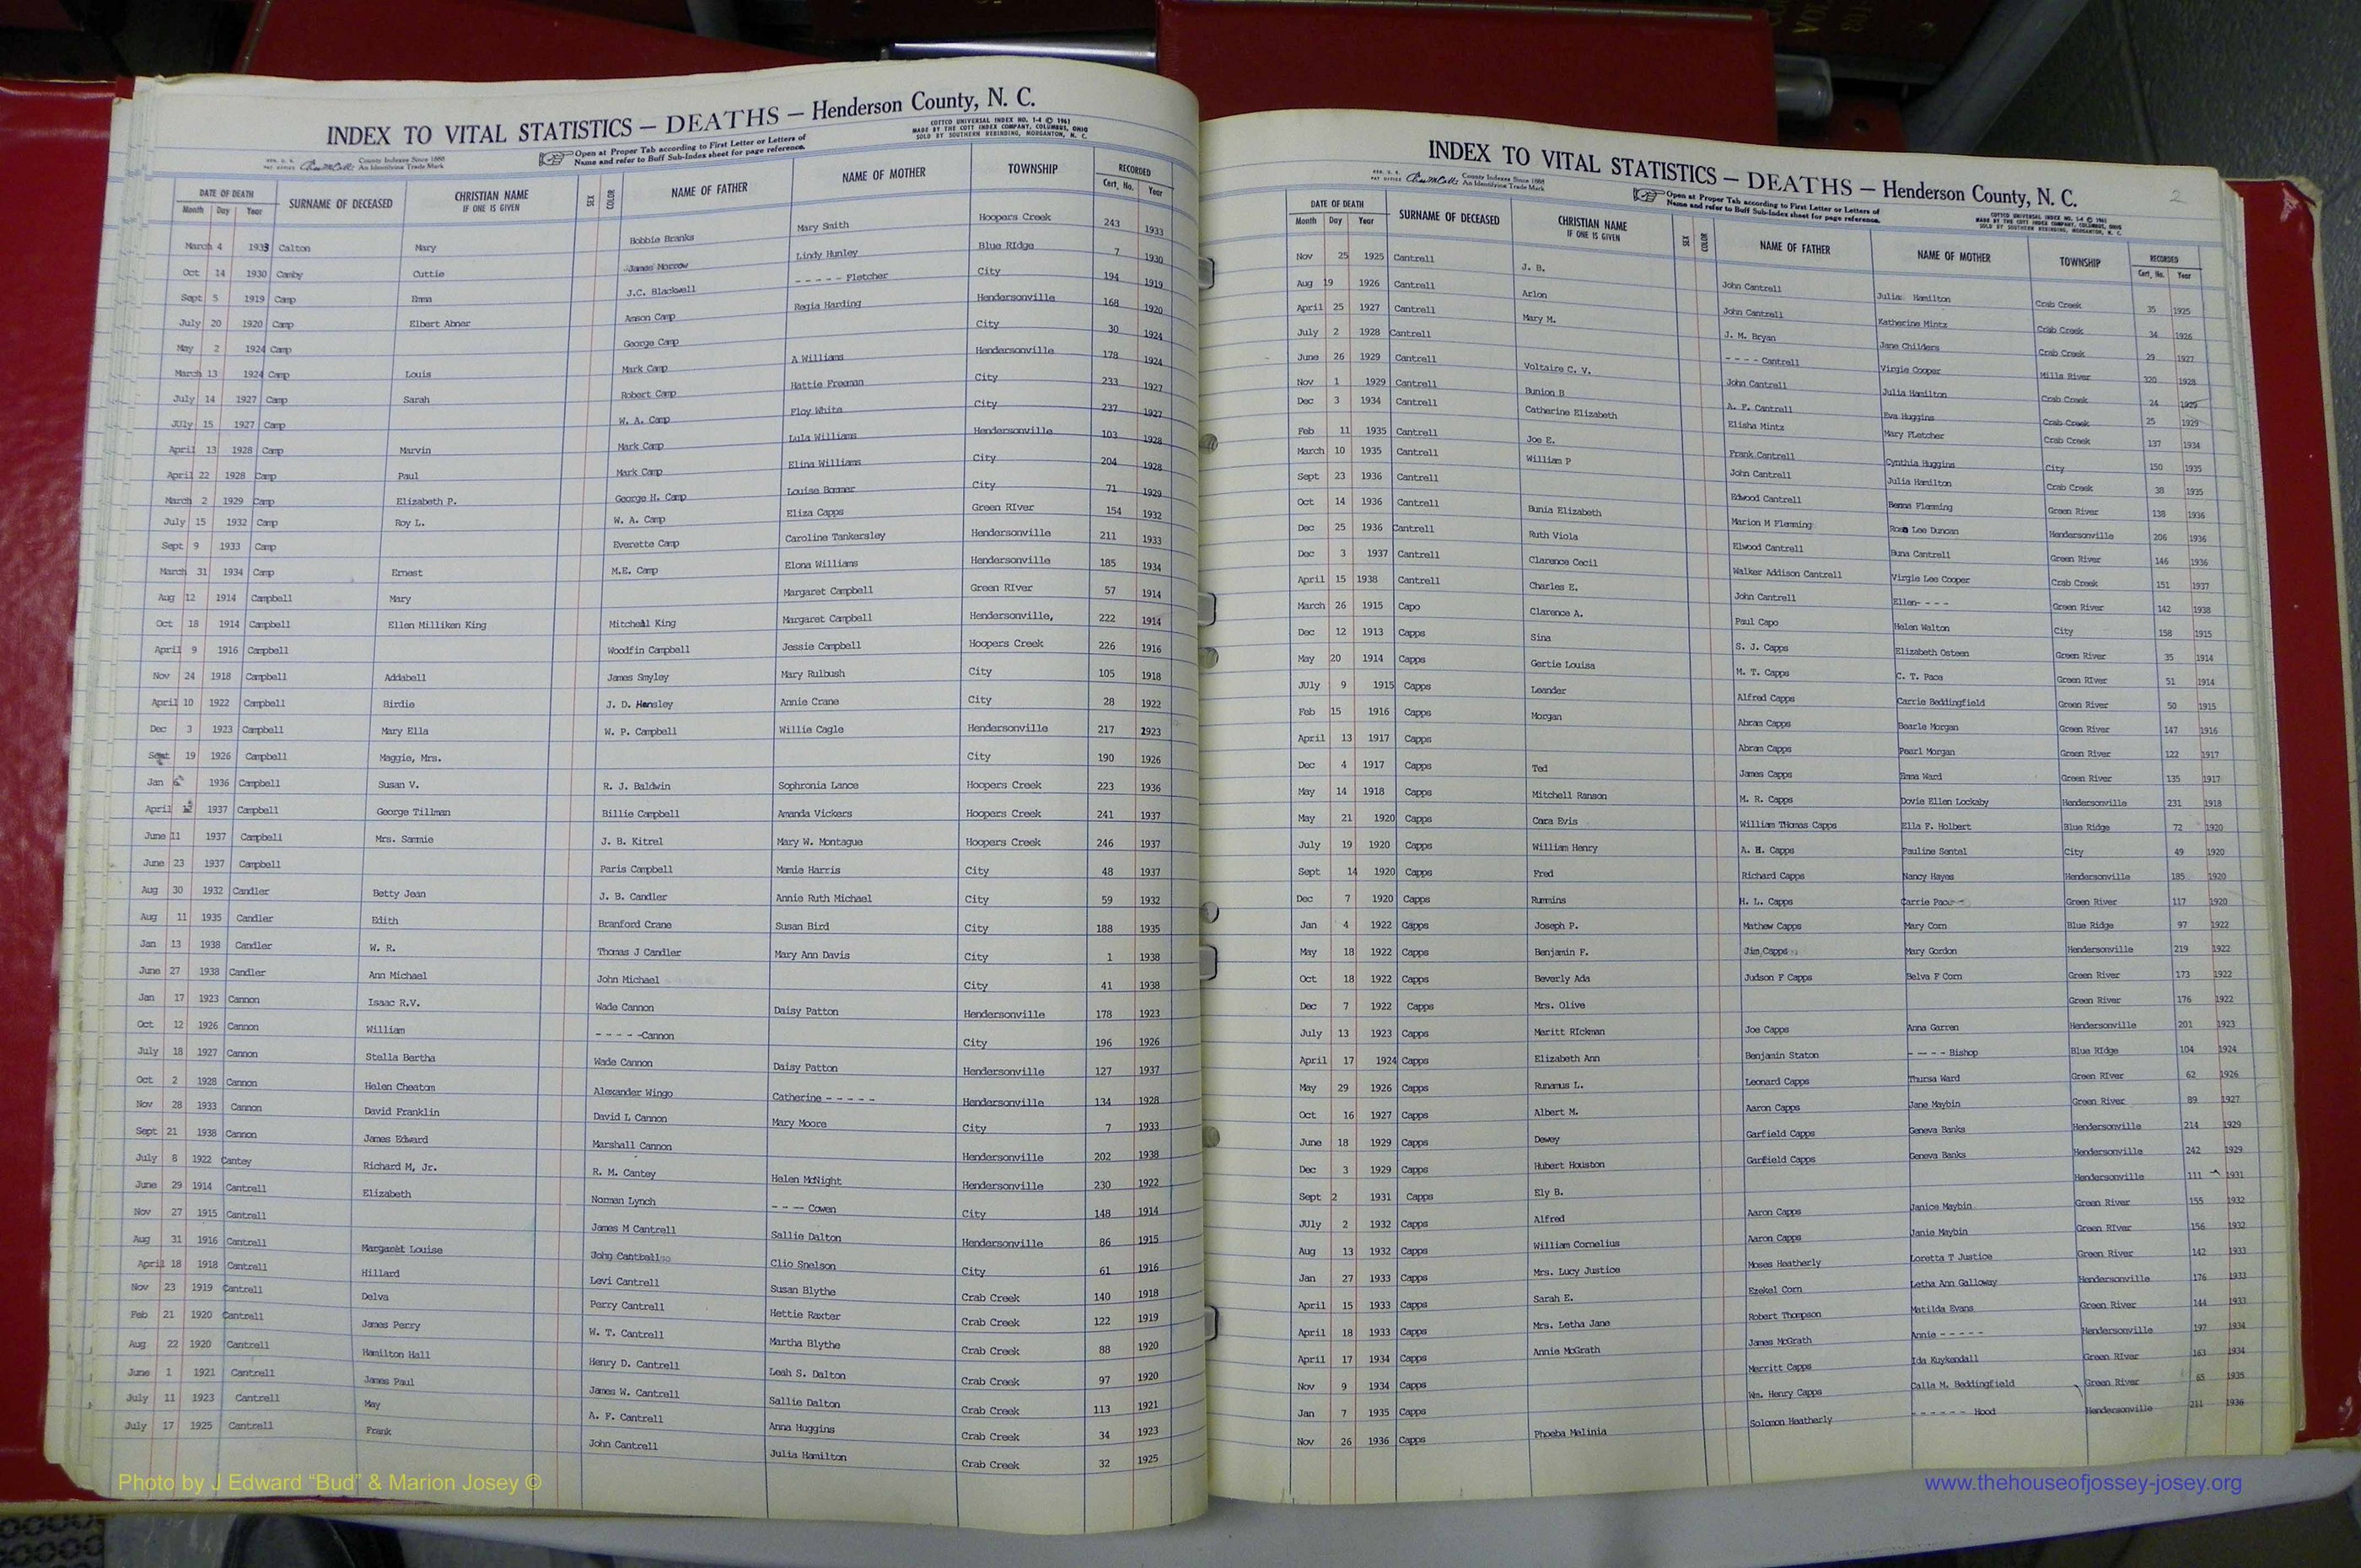 INDEX TO VITAL STATISTICS — DEATHS — Henderson County, N. C.
COTTCO UNIVERSAL INDEX NO. 1-4 © 1961
MADE BY THE COTT INDEX COMPANY, COLUMBUS, OHIO
SOLD BY SOUTHERN REBINDING, MORGANTON, N. C.
County Indexes Since 1888
An Identifying Trade Mark
Open at Proper Tab according to First Letter or Letters of
Name and refer to Buff Sub-Index sheet for page reference.
DATE OF DEATH Month Day Year SURNAME OF DECEASED CHRISTIAN NAME IF ONE IS GIVEN SEX COLOR NAME OF FATHER NAME OF MOTHER TOWNSHIP RECORDED Cert. No. Year
March 4 1933 Calton Mary Bobbie Branks Mary Smith Hoopers Creek 243 1933
Oct 14 1930 Canby Cuttie James Morrow Lindy Hunley Blue RIdge 7 1930
Sept 5 1919 Camp Emma J.C. Blackwell - - - - - Fletcher City 194 1919
July 20 1920 Camp Elbert Abner Amson Camp Regia Harding Hendersonville 168 1920
May 2 1924 Camp George Camp City 30 1924
March 13 1924 Camp Louis Mark Camp A Williams Hendersonville 178 1924
July 14 1927 Camp Sarah Robert Camp Hattie Freeman City 233 1927
JUly 15 1927 Camp W. A. Camp Floy White City 237 1927
April 13 1928 Camp Marvin Mark Camp Lula Williams Hendersonville 103 1928
April 22 1928 Camp Paul Mark Camp Elina Williams City 204 1928
March 2 1929 Camp Elizabeth P. George H. Camp Louise Bonner City 71 1929
July 15 1932 Camp Roy L. W. A. Camp Eliza Capps Green RIver 154 1932
Sept 9 1933 Camp Everette Camp Caroline Tankersley Hendersonville 211 1933
March 31 1934 Camp Ernest M.E. Camp Elona Williams Hendersonville 185 1934
Aug 12 1914 Campbell Mary Margaret Campbell Green RIver 57 1914
Oct 18 1914 Campbell Ellen Milliken King Mitchell King Margaret Campbell Hendersonville, 222 1914
April 9 1916 Campbell Woodfin Campbell Jessie Campbell Hoopers Creek 226 1916
Nov 24 1918 Campbell Addabell James Smyley Mary Rulbush City 105 1918
April 10 1922 Campbell Birdie J. D. Hensley Annie Crane City 28 1922
Dec 3 1923 Campbell Mary Ella W. P. Campbell Willie Cagle Hendersonville 217 1923
Sept 19 1926 Campbell Maggie, Mrs. City 190 1926
Jan 1936 Campbell Susan V. R. J. Baldwin Sophronia Lance Hoopers Creek 223 1936
April 1937 Campbell George Tillman Billie Campbell Amanda Vickers Hoopers Creek 241 1937
June 11 1937 Campbell Mrs. Sammie J. B. Kitrel Mary W. Montague Hoopers Creek 246 1937
June 23 1937 Campbell Paris Campbell Mamie Harris City 48 1937
Aug 30 1932 Candler Betty Jean J. B. Candler Annie Ruth Michael City 59 1932
Aug 11 1935 Candler Edith Branford Crane Susan Bird City 188 1935
Jan 13 1938 Candler W. R. Thomas J Candler Mary Ann Davis City 1 1938
June 27 1938 Candler Ann Michael John Michael City 41 1938
Jan 17 1923 Cannon Isaac R.V. Wade Cannon Daisy Patton Hendersonville 178 1923
Oct 12 1926 Cannon William - - - - -Cannon City 196 1926
July 18 1927 Cannon Stella Bertha Wade Cannon Daisy Patton Hendersonville 127 1937
Oct 2 1928 Cannon Helen Cheatom Alexander Wingo Catherine - - - - - Hendersonville 134 1928
Nov 28 1933 Cannon David Franklin David L Cannon Mary Moore City 7 1933
Sept 21 1938 Cannon James Edward Marshall Cannon Hendersonville 202 1938
July 8 1922 Cantey Richard M, Jr. R. M. Cantey Helen McNight Hendersonville 230 1922
June 29 1914 Cantrell Elizabeth Norman Lynch - - -- Cowen City 148 1914
Nov 27 1915 Cantrell James M Cantrell Sallie Dalton Hendersonville 86 1915
Aug 31 1916 Cantrell Margaret Louise John Cantrell Clio Snelson City 61 1916
April 18 1918 Cantrell Hillard Levi Cantrell Susan Blythe Crab Creek 140 1918
Nov 23 1919 Cantrell Delva Perry Cantrell Hettie Raxter Crab Creek 122 1919
Feb 21 1920 Cantrell James Perry W. T. Cantrell Martha Blythe Crab Creek 88 1920
Aug 22 1920 Cantrell Hamilton Hall Henry D. Cantrell Leah S. Dalton Crab Creek 97 1920
June 1 1921 Cantrell James Paul James W. Cantrell Sallie Dalton Crab Creek 113 1921
July 11 1923 Cantrell May A. F. Cantrell Anna Huggins Crab Creek 34 1923
July 17 1925 Cantrell Frank John Cantrell Julia Hamilton Crab Creek 32 1925
Photo by J Edward “Bud” & Marion Josey ©
INDEX TO VITAL STATISTICS — DEATHS — Henderson County, N. C.
2
County Indexes Since 1888
An Identifying Trade Mark
Open at Proper Tab according to First Letter or Letters of
Name and refer to Buff Sub-Index sheet for page reference.
COTTCO UNIVERSAL INDEX NO. 1-4 © 1961
MADE BY THE COTT INDEX COMPANY, COLUMBUS, OHIO
SOLD BY SOUTHERN REBINDING, MORGANTON, N. C.
DATE OF DEATH Month Day Year SURNAME OF DECEASED CHRISTIAN NAME IF ONE IS GIVEN SEX COLOR NAME OF FATHER NAME OF MOTHER TOWNSHIP RECORDED Cert. No. Year
Nov 25 1925 Cantrell J. B. John Cantrell Julia Hamilton Crab Creek 35 1925
Aug 19 1926 Cantrell Arlon John Cantrell Katherine Mintz Crab Creek 34 1926
April 25 1927 Cantrell Mary M. J. M. Bryan Jane Childers Crab Creek 29 1927
July 2 1928 Cantrell - - - - Cantrell Virgie Cooper Mills River 320 1928
June 26 1929 Cantrell Voltaire C. V. John Cantrell Julia Hamilton Crab Creek 24 1929
Nov 1 1929 Cantrell Bunion B A. F. Cantrell Eva Huggins Crab Creek 25 1929
Dec 3 1934 Cantrell Catherine Elizabeth Elisha Mintz Mary Fletcher Crab Creek 137 1934
Feb 11 1935 Cantrell Joe E. Frank Cantrell Cynthia Huggins City 150 1935
March 10 1935 Cantrell William P John Cantrell Julia Hamilton Crab Creek 38 1935
Sept 23 1936 Cantrell Edwood Cantrell Benna Flemming Green River 138 1936
Oct 14 1936 Cantrell Bunia Elizabeth Marion M Flemming Rosa Lee Duncan Hendersonville 206 1936
Dec 25 1936 Cantrell Ruth Viola Elwood Cantrell Buna Cantrell Green River 146 1936
Dec 3 1937 Cantrell Clarence Cecil Walker Addison Cantrell Virgie Lee Cooper Crab Creek 151 1937
April 15 1938 Cantrell Charles E. John Cantrell Ellen- - - - Green River 142 1938
March 26 1915 Capo Clarence A. Paul Capo Helen Walton City 158 1915
Dec 12 1913 Capps Sina S. J. Capps Elizabeth Osteen Green River 35 1914
May 20 1914 Capps Gertie Louisa M. T. Capps C. T. Pace Green RIver 51 1914
JUly 9 1915 Capps Leander Alfred Capps Carrie Beddingfield Green River 50 1915
Feb 15 1916 Capps Morgan Abram Capps Bearle Morgan Green River 147 1916
April 13 1917 Capps Abram Capps Pearl Morgan Green River 122 1917
Dec 4 1917 Capps Ted James Capps Emma Ward Green River 135 1917
May 14 1918 Capps Mitchell Ranson M. R. Capps Dovie Ellen Lockaby Hendersonville 231 1918
May 21 1920 Capps Cora Evis William THomas Capps Ella F. Holbert Blue Ridge 72 1920
July 19 1920 Capps William Henry A. H. Capps Pauline Sentel City 49 1920
Sept 14 1920 Capps Fred Richard Capps Nancy Hayes Hendersonville 185 1920
Dec 7 1920 Capps Rummins H. L. Capps Carrie Pace Green River 117 1920
Jan 4 1922 Capps Joseph P. Mathew Capps Mary Corn Blue Ridge 97 1922
May 18 1922 Capps Benjamin F. Jim Capps Mary Gordon Hendersonville 219 1922
Oct 18 1922 Capps Beverly Ada Judson F Capps Belva F Corn Green River 173 1922
Dec 7 1922 Capps Mrs. Olive Green River 176 1922
July 13 1923 Capps Meritt RIckman Joe Capps Anna Garren Hendersonville 201 1923
April 17 1924 Capps Elizabeth Ann Benjamin Staton - - - - Bishop Blue RIdge 104 1924
May 29 1926 Capps Runamus L. Leonard Capps Thursa Ward Green RIver 62 1926
Oct 16 1927 Capps Albert M. Aaron Capps Jane Maybin Green River 89 1927
June 18 1929 Capps Dewey Garfield Capps Geneva Banks Hendersonville 214 1929
Dec 3 1929 Capps Hubert Houston Garfield Capps Geneva Banks Hendersonville 242 1929
Sept 2 1931 Capps Ely B. Hendersonville 111 1931
JUly 2 1932 Capps Alfred Aaron Capps Janice Maybin Green River 155 1932
Aug 13 1932 Capps William Cornelius Aaron Capps Janie Maybin Green RIver 156 1932
Jan 27 1933 Capps Mrs. Lucy Justice Moses Heatherly Loretta T Justice Green River 142 1933
April 15 1933 Capps Sarah E. Ezekel Corn Letha Ann Galloway Hendersonville 176 1933
April 18 1933 Capps Mrs. Letha Jane Robert Thompson Matilda Evans Green River 144 1933
April 17 1934 Capps Annie McGrath James McGrath Annie - - - - - Hendersonville 197 1934
Nov 9 1934 Capps Merritt Capps Ida Kuykendall Green RIver 163 1934
Jan 7 1935 Capps Wm. Henry Capps Calla M. Beddingfield Green River 65 1935
Nov 26 1936 Capps Phoeba Melinia Solomon Heatherly - - - - - - Hood Hendersonville 211 1936
www.thehouseofjossey-josey.org